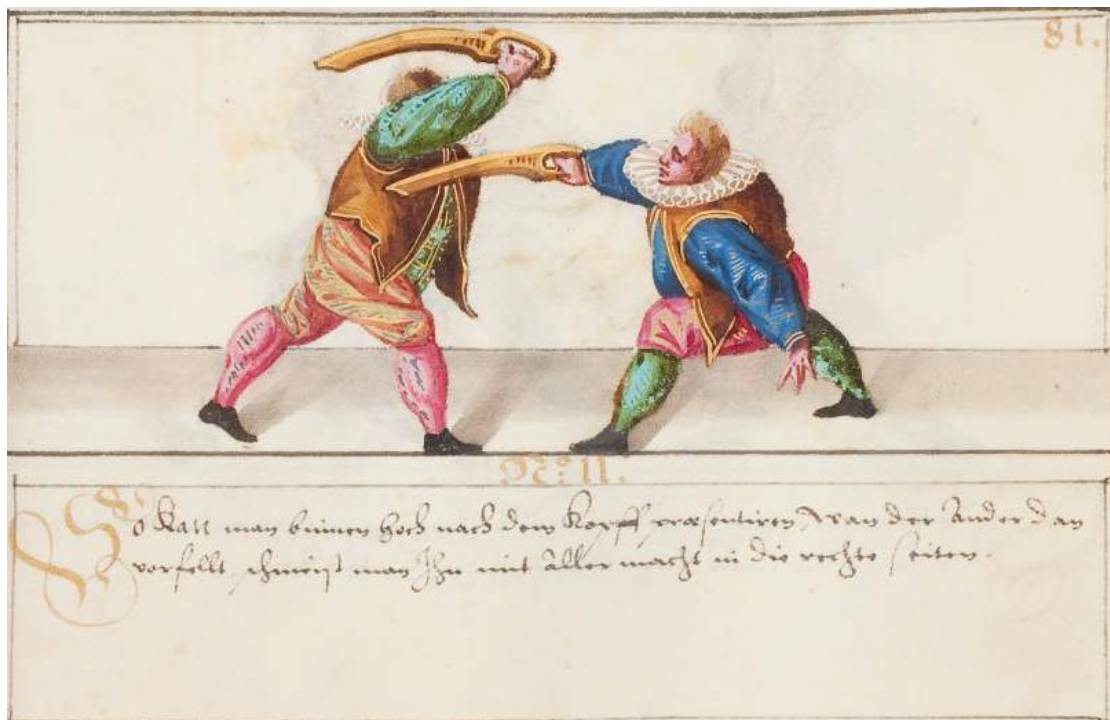 81.
No: 11.
So Kan man binnen hoch nach dem Kopff præsentiren, wan der Ander dan
vorfellt, schmeist man Ihn mit aller macht in die rechte seiten.